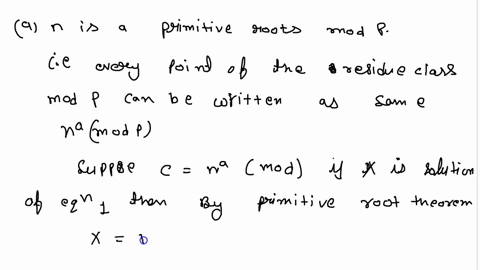 (a) n is a primitive roots mod P.
i.e every point of the residue class
mod P can be written as some
n^a (mod P)
Suppse c = n^a (mod) if x is solution
of eq^n 1 then By primitive root theorem
X =